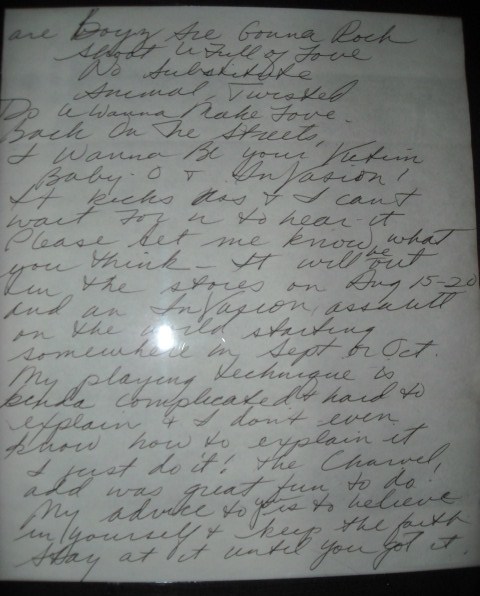 are Boyz Are Gonna Rock
Shoot U Full of Love
No Substitute
Animal, Twisted
Do U Wanna Make Love.
Back On The Streets,
I Wanna Be Your Victim
Baby-O & InVasion!
It kicks ass & I can't
wait for u to hear it
Please let me know what
you think - It will be out
in the stores on Aug 15-20
and an InVasion assault
on the world starting
somewhere in Sept or Oct.
My playing technique is
kinda complicated & hard to
explain & I don't even
know how to explain it
I just do it! The Charvel,
add was great fun to do.
My advice to you is to believe
in yourself & keep the faith
stay at it until you got it.